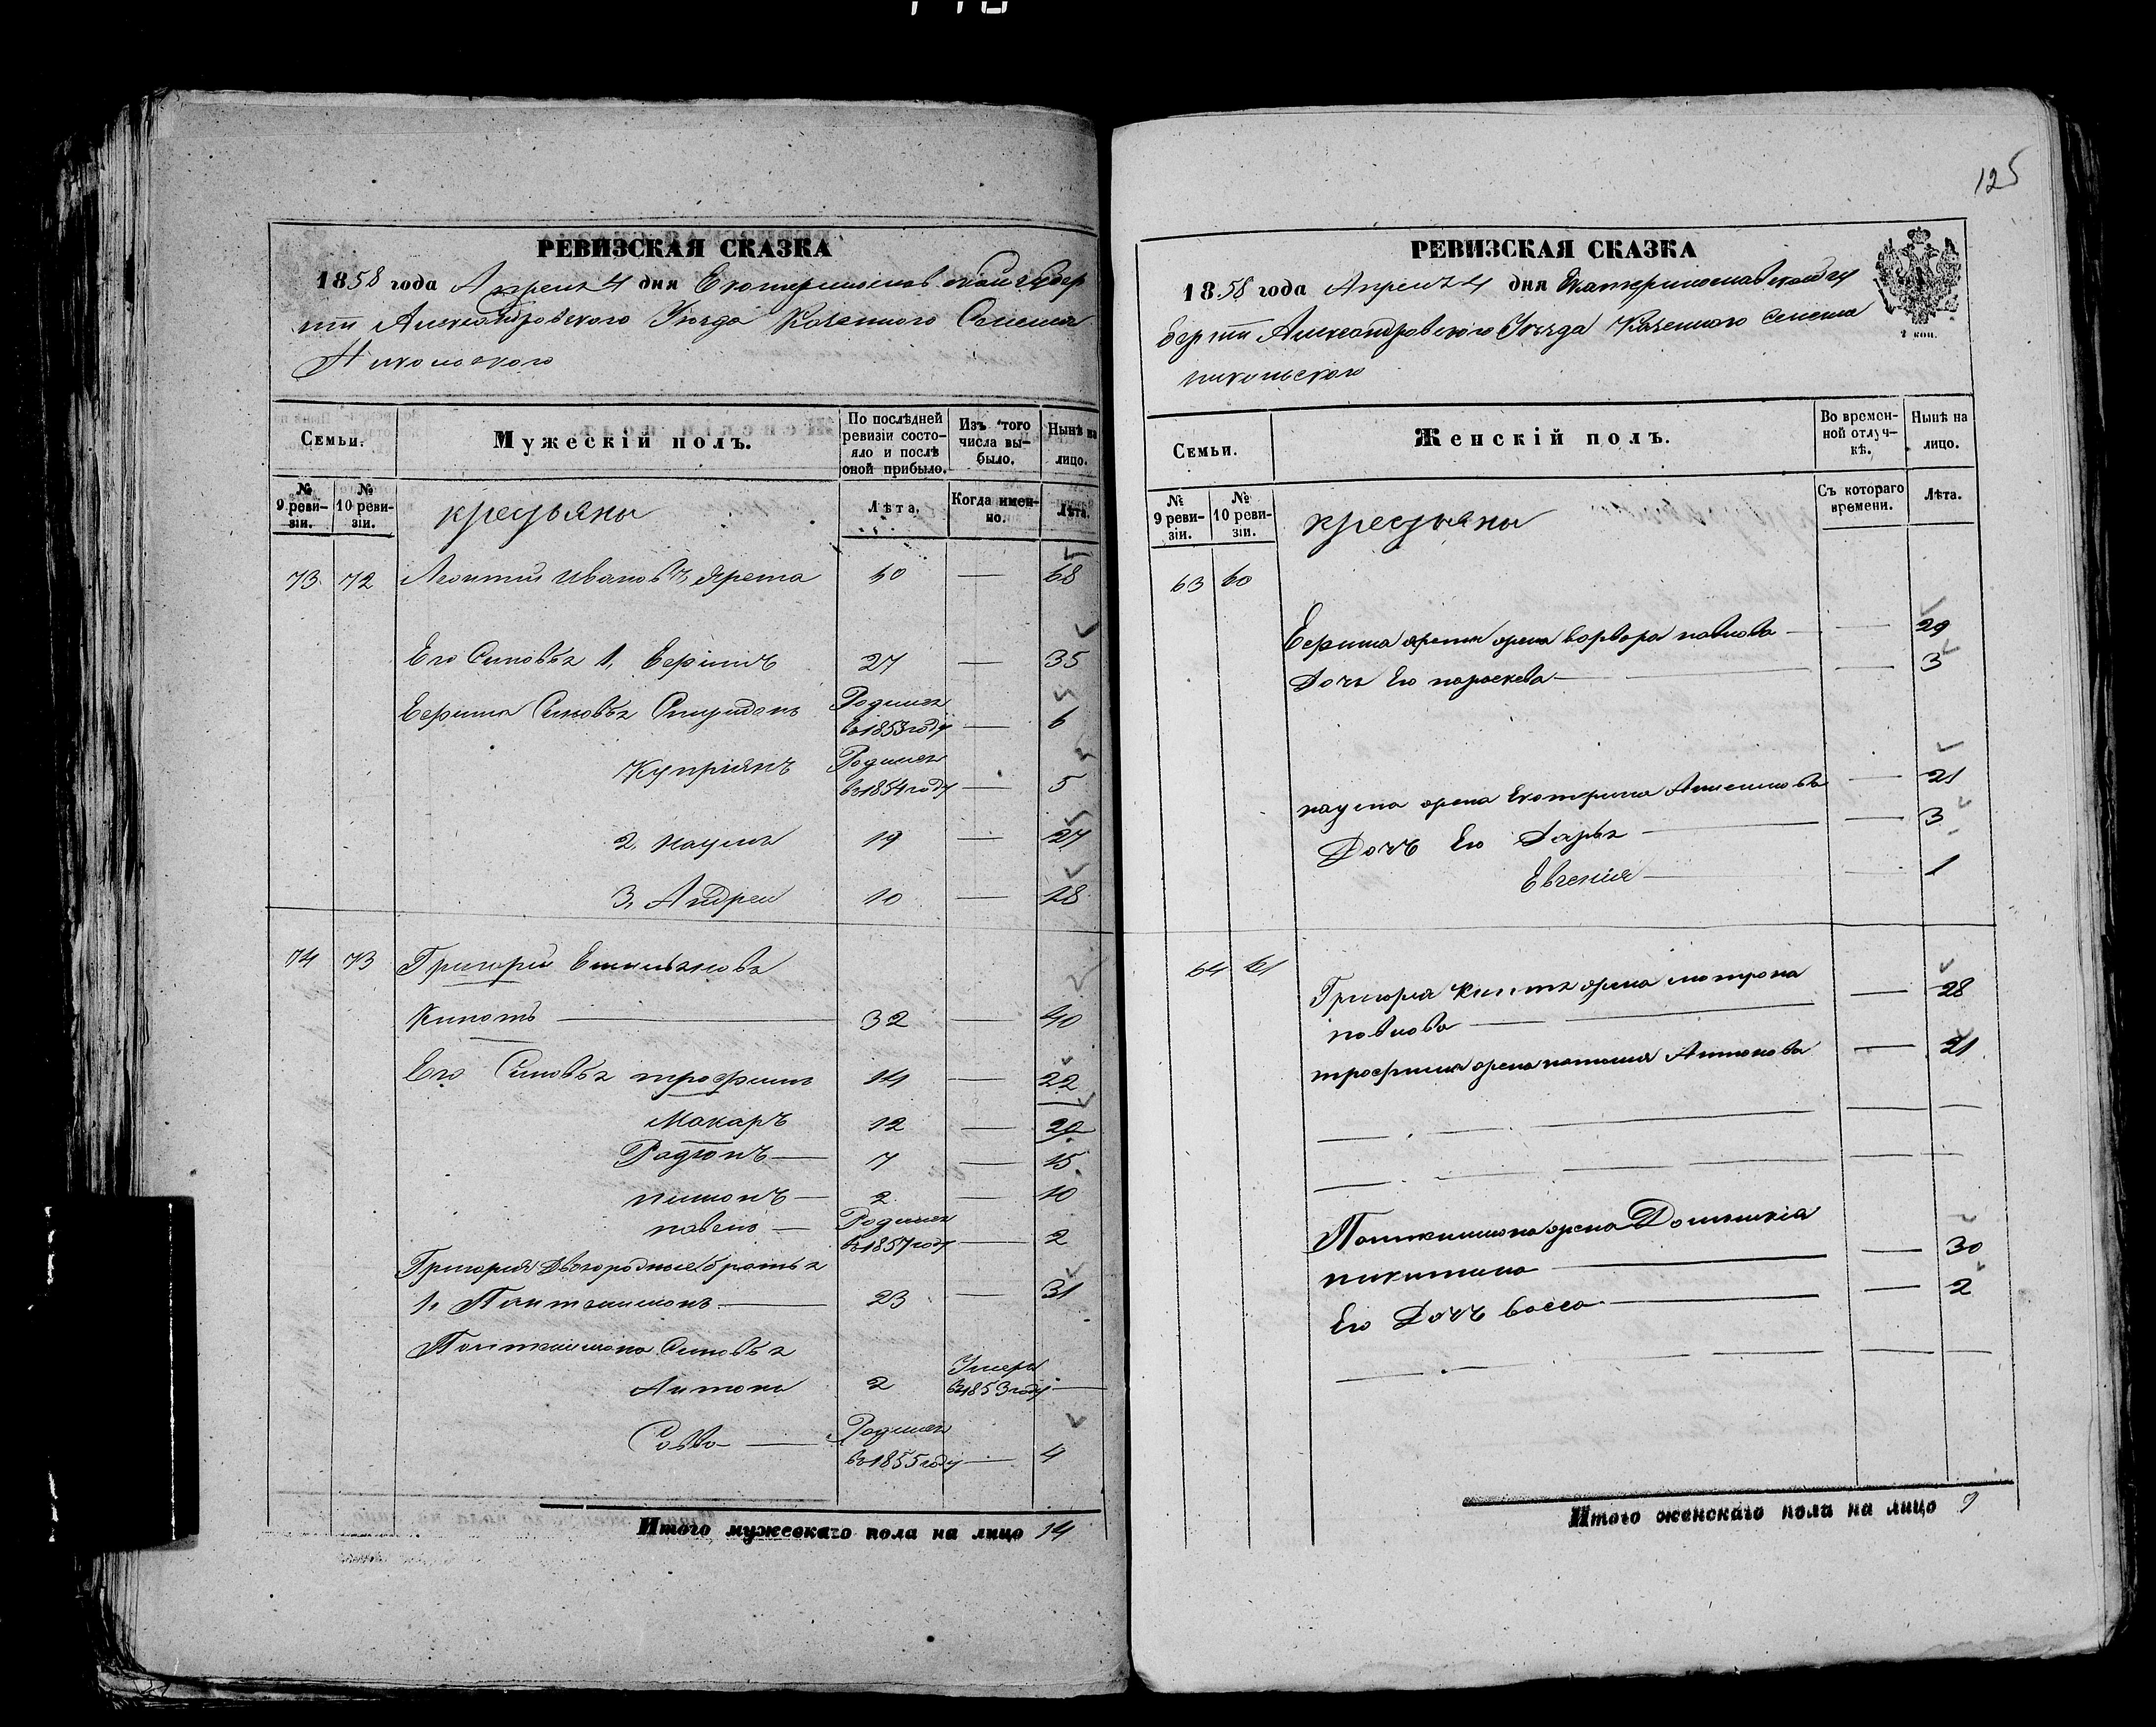 125
РЕВИЗСКАЯ СКАЗКА
1858 года Апреля 4 дня Екатеринославской губер
нии Александровского Уезда Казенного Селения
Никольского
Семьи.
Мужескій полъ.
По послѣдней ревизіи состояло и послѣ оной прибыло.
Изъ того числа выбыло.
Нынѣ на лицо.
№ 9 ревизіи.
№ 10 ревизіи.
крестьяны
Лѣта.
Когда именно.
Лѣта.
73 72 Леонтий Ивановъ Ярема 60 — 68
Его Сыновья 1, Ефримъ 27 — 35
Ефрима Сыновья Спиридонъ Родился в 1853 году — 6
Куприянъ Родился в 1854 году — 5
2, наумъ 19 — 27
3, Андрей 10 — 18
74 73 Григорий Емильянова
Кипотъ — 32 — 40
Его Сыновья трофимъ 14 — 22
Макаръ 12 — 20
Радионъ — 7 — 15
пимонъ — 2 — 10
павелъ — Родился в 1857 году — 2
Григория Двоюродные братья
1, Пантелимонъ — 23 — 31
Пантелимона Сыновья
Антонъ 2 Умеръ в 1853 году —
Савва — Родился в 1855 году — 4
Итого мужескаго пола на лицо 14
РЕВИЗСКАЯ СКАЗКА
1858 года Апреля 4 дня Екатеринославской гу
бернии Александровского Уезда Казенного Селения
никольского
2 коп.
Семьи.
Женскій полъ.
Во временной отлучкѣ.
Нынѣ на лицо.
№ 9 ревизіи.
№ 10 ревизіи.
крестьяны
Съ котораго времени.
Лѣта.
63 60
Ефрима яремы жена варвара павлова — — 29
Дочь Его параскева — — 3
наума жена Екатерина — 21
Дочъ Его Дарья — — 3
Евгения — — 1
64 61
Григория жена матрона
павлова — — 28
трофима жена наталия Антонова — 21
Пантелимона жена Домникия
никитина — — 30
Его Дочъ васса — — 2
Итого женскаго пола на лицо 9